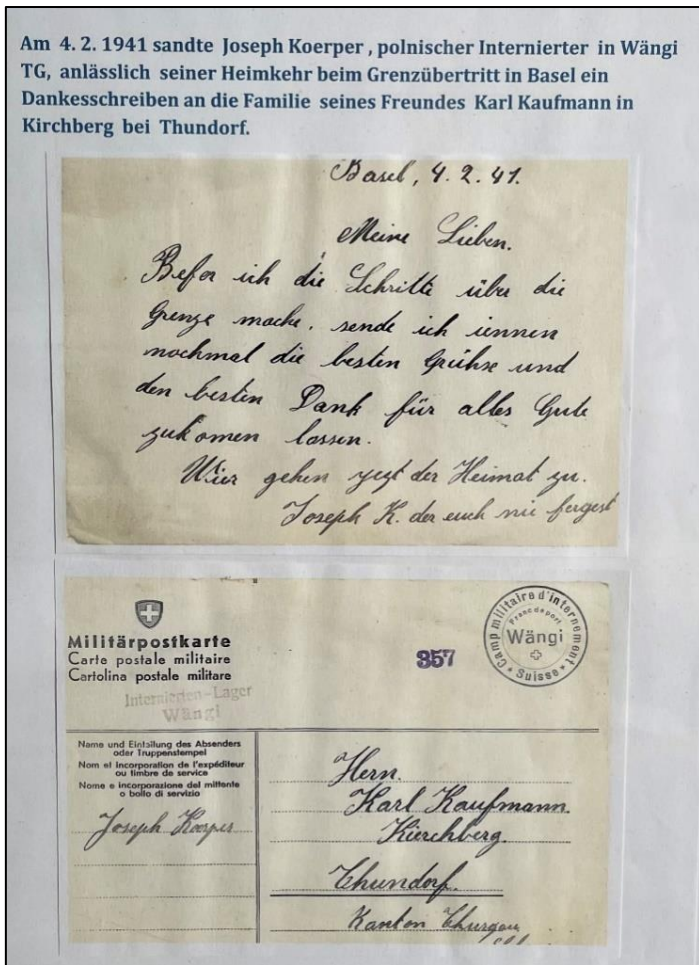 Am 4. 2. 1941 sandte Joseph Koerper , polnischer Internierter in Wängi
TG, anlässlich seiner Heimkehr beim Grenzübertritt in Basel ein
Dankesschreiben an die Familie seines Freundes Karl Kaufmann in
Kirchberg bei Thundorf.
Basel, 4. 2. 41.
Meine Lieben.
Befor ich die Schritte über die
Grenze mache, sende ich iennen
nochmal die besten Grühse und
den besten Dank für alles Gute
zukomen lassen.
Wier gehen yezt der Heimat zu.
Joseph K. der euch nie fergest
Militärpostkarte
Carte postale militaire
Cartolina postale militare
Internierten-Lager
Wängi
357
Camp militaire d'internement
Franc de port
Wängi
Suisse
Name und Einteilung des Absenders
oder Truppenstempel
Nom et incorporation de l'expéditeur
ou timbre de service
Nome e incorporazione del mittente
o bollo di servizio
Joseph Koerper
Hern.
Karl Kaufmann.
Kierchberg.
Thundorf.
Kanton Thurgau